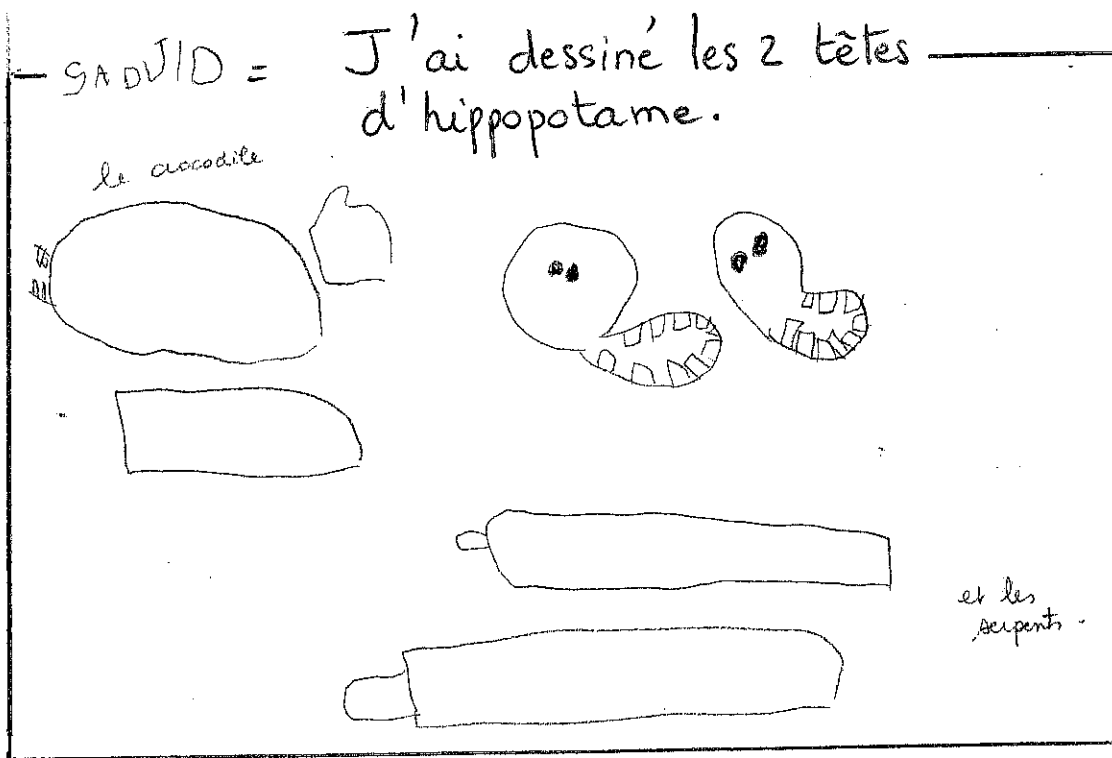 SADVID = J'ai dessiné les 2 têtes
d'hippopotame.
le crocodile
et les
serpents.